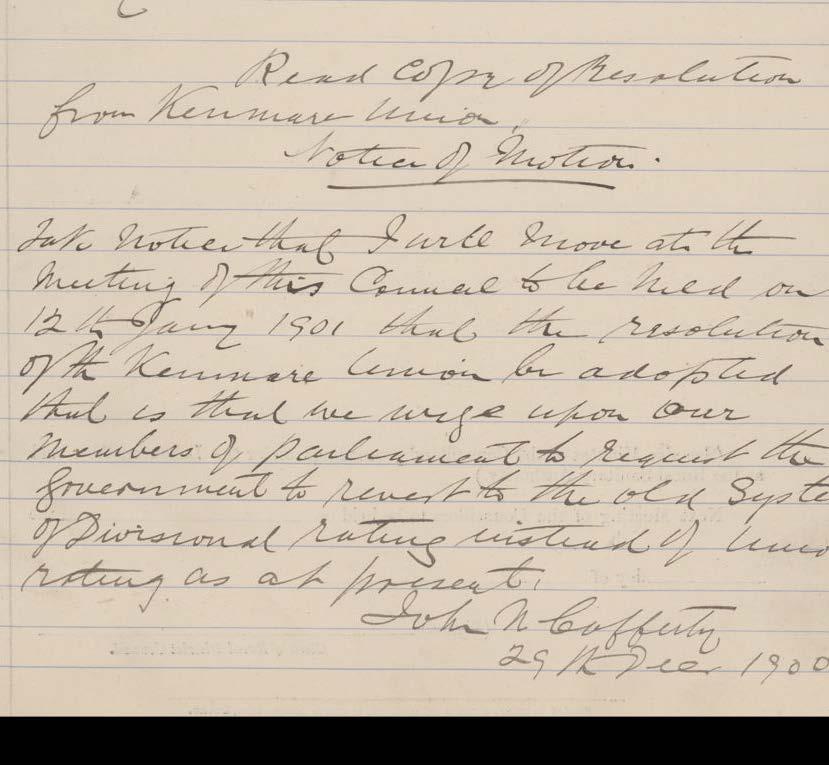 Read Copy of Resolution
from Kenmare Union.
Notice of Motion.
Take Notice that I will move at the
Meeting of this Council to be held on
12th Jany 1901 that the resolution
of the Kenmare Union be adopted
that is that we urge upon our
Members of parliament to request the
Government to revert to the old Syste
of Divisional rating instead of Unio
rating as at present.
John McCafferty
29th Decr 1900